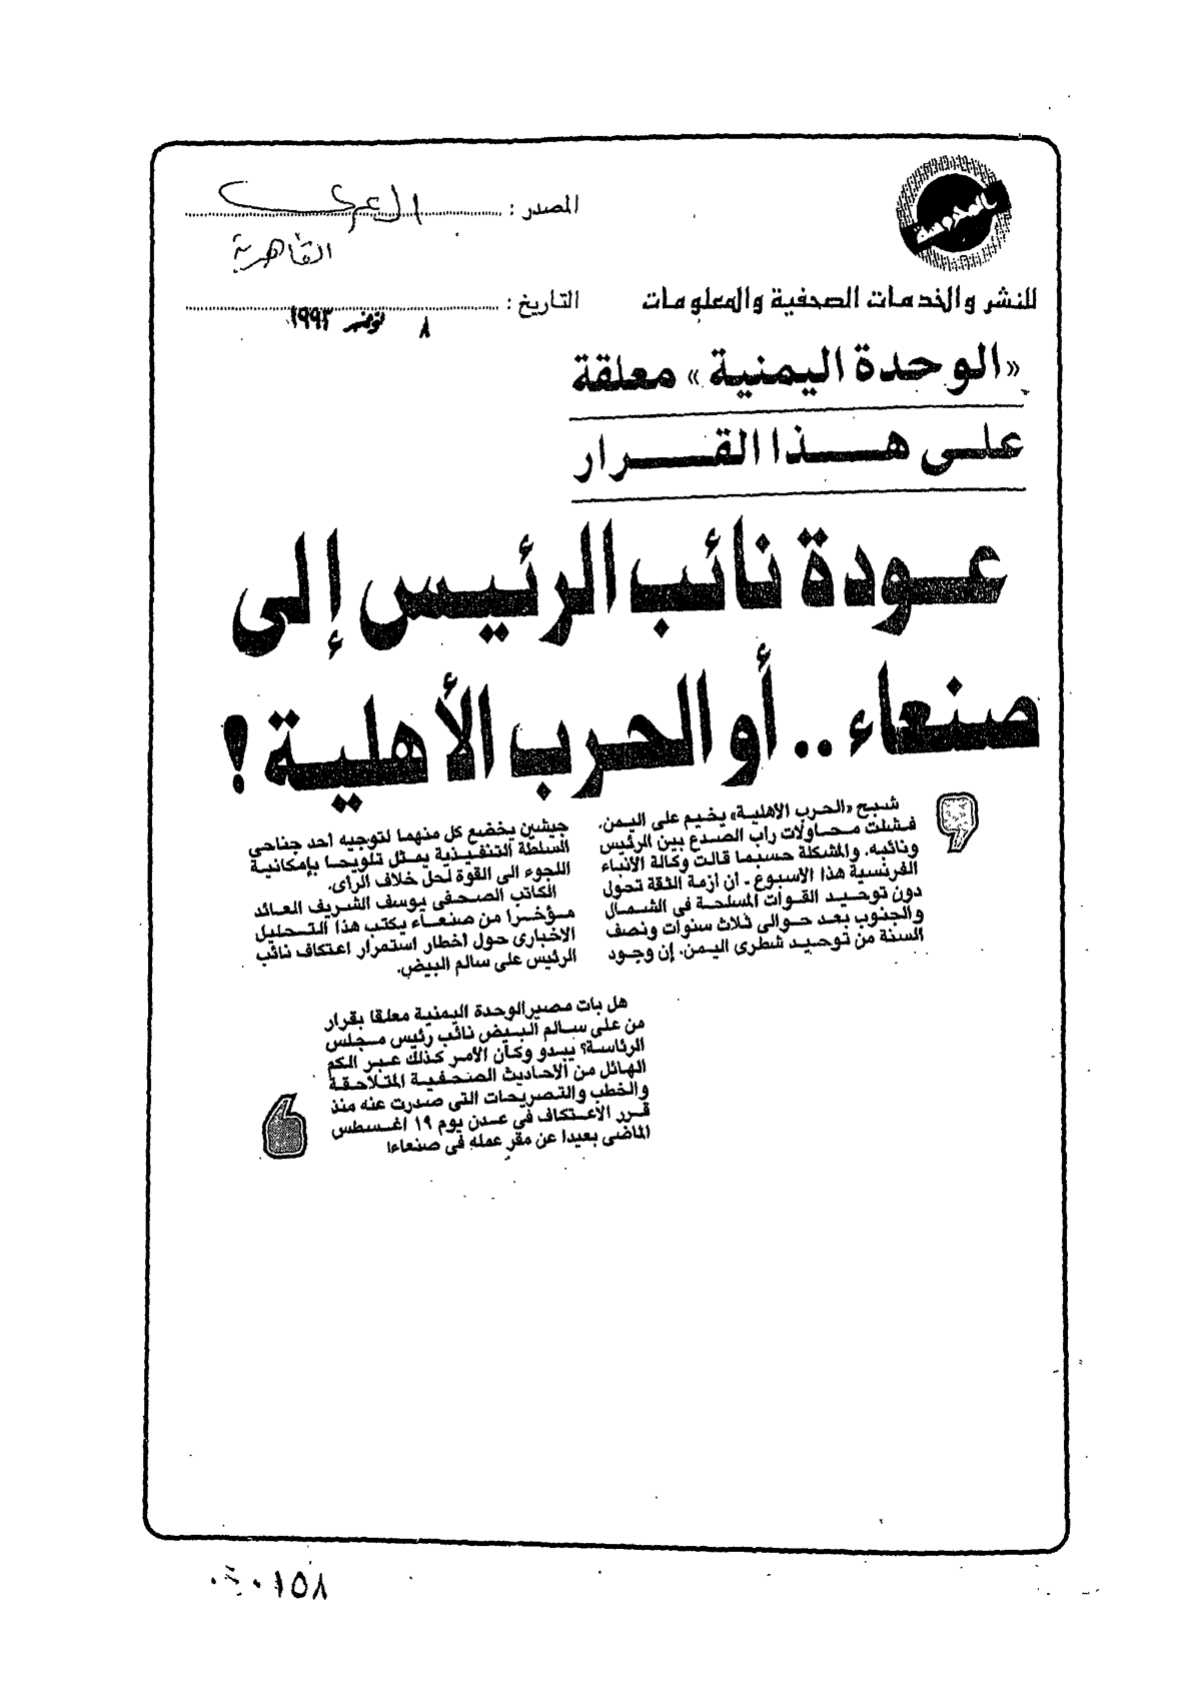 المحروسة
للنشر والخدمات الصحفية والمعلومات
المصدر : العربي
القاهرية
التاريخ : ٨ نوفمبر ١٩٩٣
«الوحدة اليمنية» معلقة
على هذا القرار
عودة نائب الرئيس إلى
صنعاء .. أو الحرب الأهلية !
شبح «الحرب الأهلية» يخيم على اليمن.
فشلت محاولات راب الصدع بين الرئيس
ونائبه. والمشكلة حسبما قالت وكالة الأنباء
الفرنسية هذا الأسبوع - أن أزمة الثقة تحول
دون توحيد القوات المسلحة فى الشمال
والجنوب بعد حوالى ثلاث سنوات ونصف
السنة من توحيد شطرى اليمن. إن وجود
جيشين يخضع كل منهما لتوجيه أحد جناحى
السلطة التنفيذية يمثل تلويحا بإمكانية
اللجوء الى القوة لحل خلاف الرأى.
الكاتب الصحفى يوسف الشريف العائد
مؤخرا من صنعاء يكتب هذا التحليل
الاخبارى حول اخطار استمرار اعتكاف نائب
الرئيس على سالم البيض.
هل بات مصير الوحدة اليمنية معلقا بقرار
من على سالم البيض نائب رئيس مجلس
الرئاسة؟ يبدو وكأن الأمر كذلك عبر الكم
الهائل من الأحاديث الصحفية المتلاحقة
والخطب والتصريحات التى صدرت عنه منذ
قرر الاعتكاف في عدن يوم ١٩ اغسطس
الماضى بعيدا عن مقر عمله فى صنعاء!
١٥٨